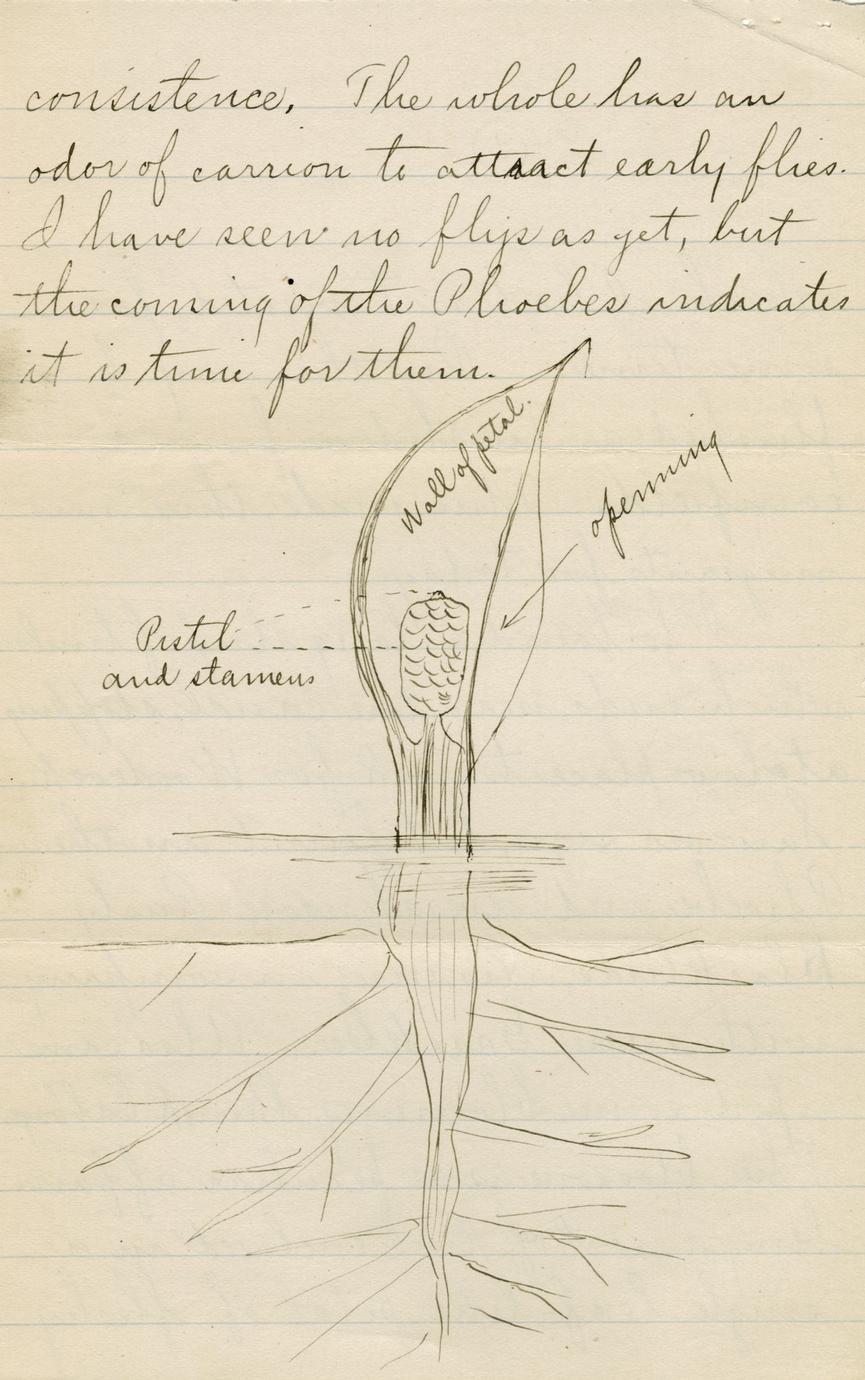 consistence. The whole has an
odor of carrion to attract early flies.
I have seen no flys as yet, but
the coming of the Phoebes indicates
it is time for them.
Wall of petal.
openning
Pistil
and stamens